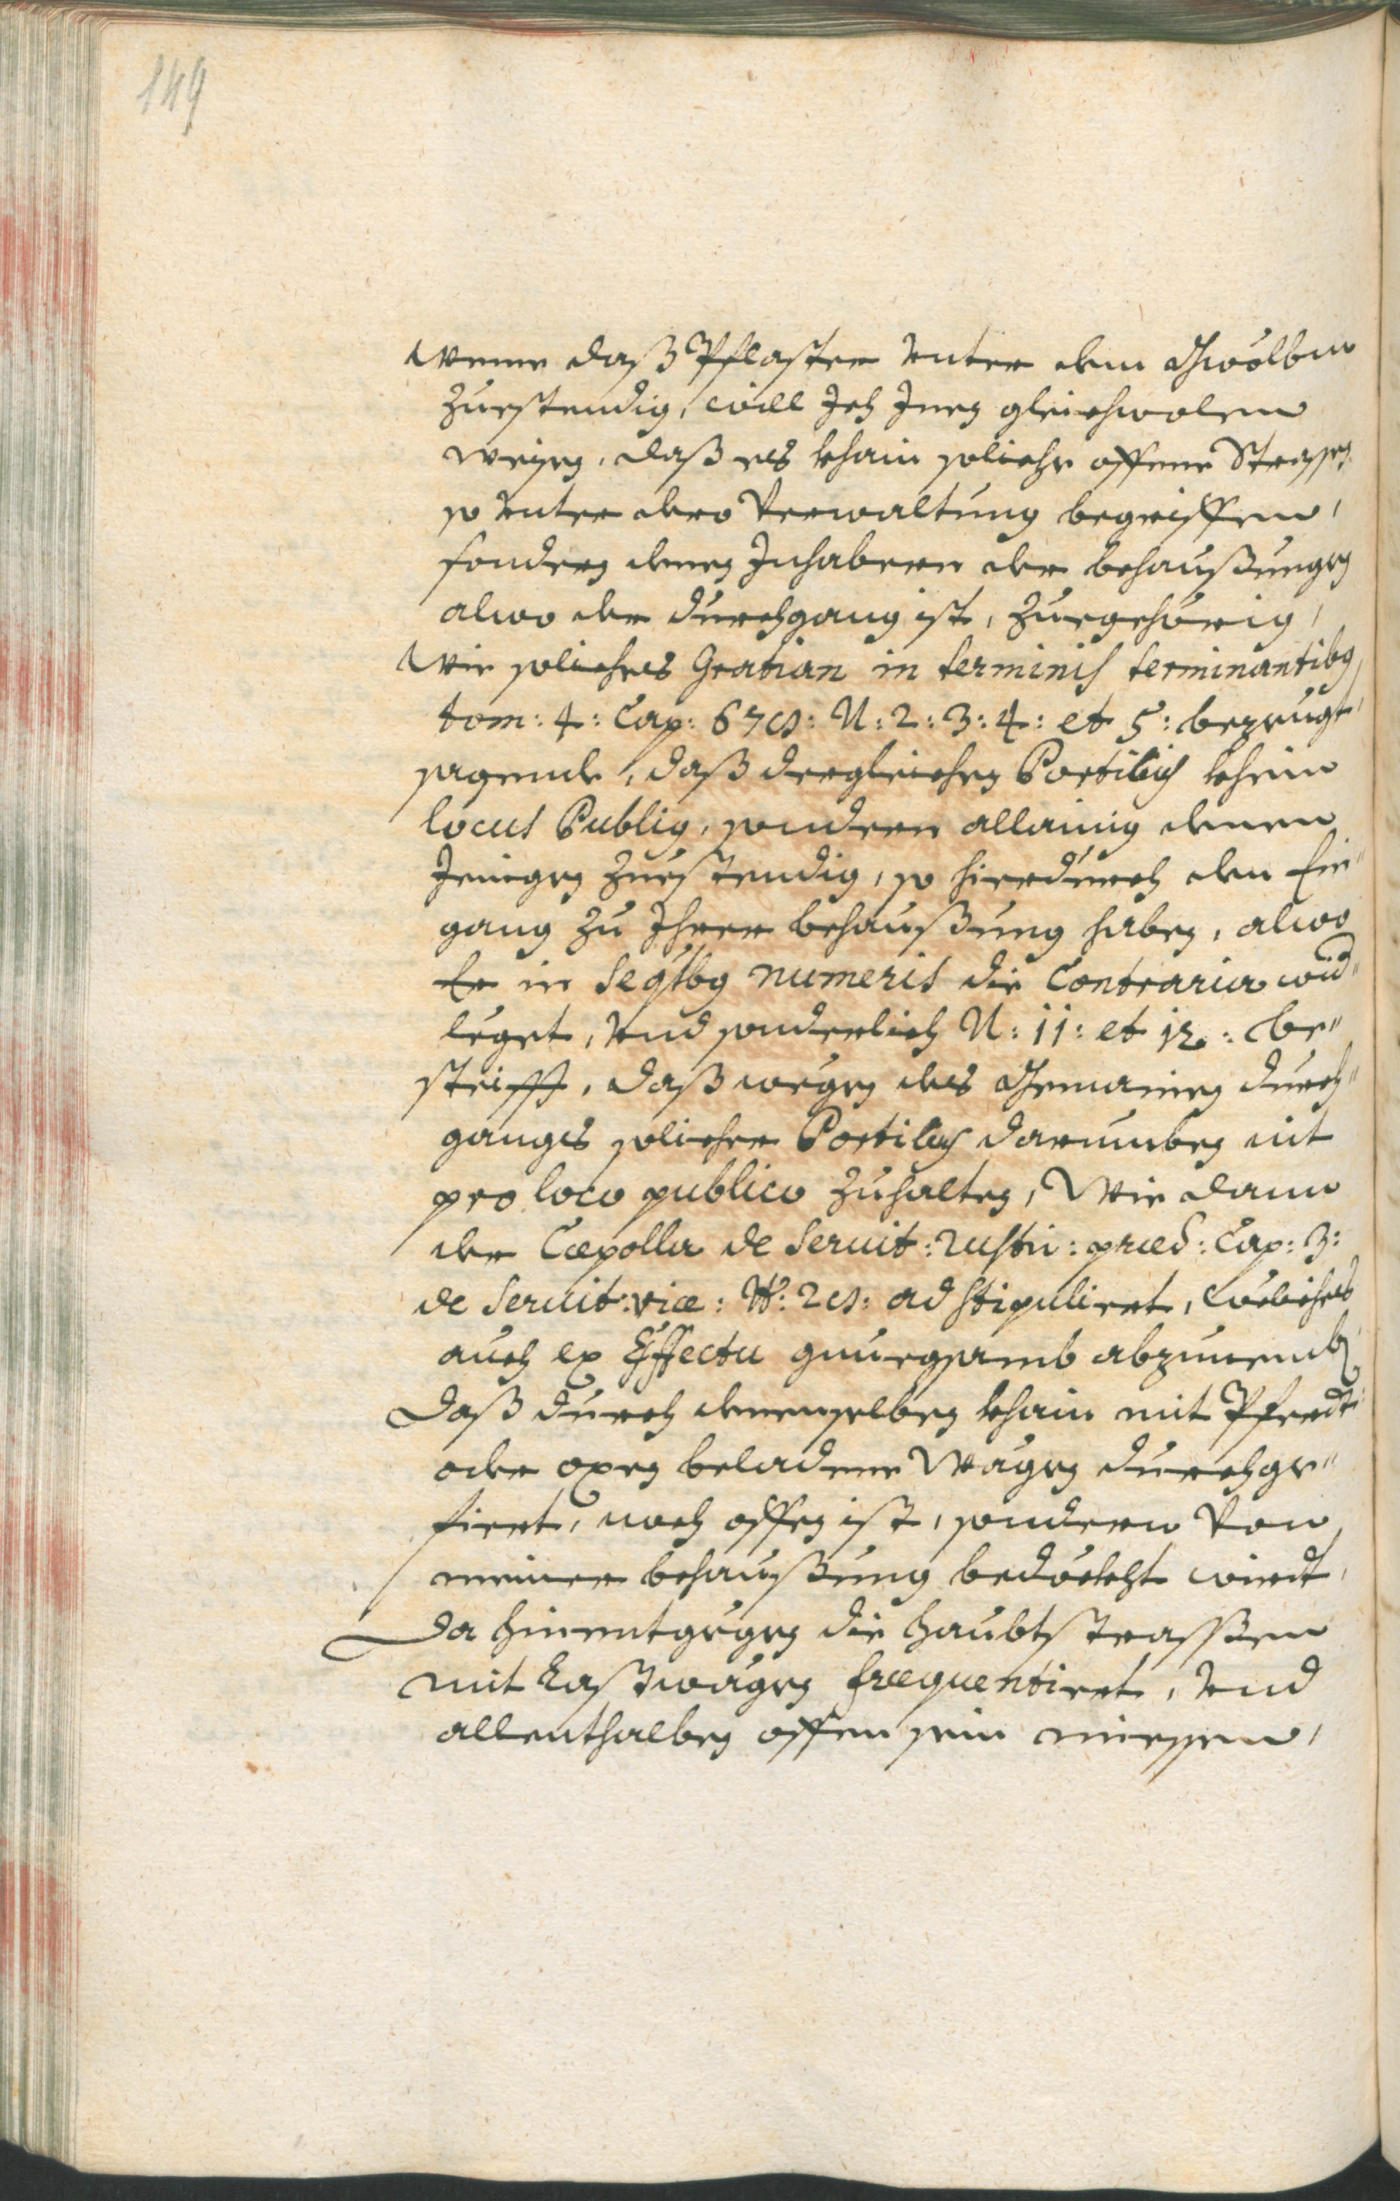 149
Weme daß Pflaster Vnter dem Gwölbm
Zuestendig, will Ich Inen gleichwolen
weisen, daß es khain soliche offene Strassen
so Vnter dero Verwaltung begriffen,
sondern denen Inhabern der behaußungen
alwo der durchgang ist, Zuegehörig,
Wie soliches Gratian in terminis terminantibus
tom: 4: Cap: N: 2: 3: 4: et 5: bezeugt
sagende, daß dergleichen Porticus khein
locus Publicus, sondern allainig denen
Jenigen Zuestendig, so hierdurch den Ein"
gang zu Ihrer behaußung haben, alwo
Er in seqtibus numeris die Contraria wid"
leget, Vnd sonderlich N: 11: et 12: be"
steifft, daß wegen des Gemainen durch"
ganges solicher Porticus darumben nit
pro loco publico Zuhalten, Wie dann
der Cæpolla de Seruit: rusti: præd: Cap: 3:
de Seruit: viæ: ad stipuliert, weliches
auch ex Effectu gnuegsamb abzunemben
Daß durch denenselben khain mit Pferdt
oder oxen beladene Wägen durchge"
fiert, noch offen ist, sondern Von
meiner behaußung bedöckht wirdt,
Da hinentgegen die haubtstrassen
mit Lastwägen frequentiert, Vnd
allenthalben offen sein miessen,